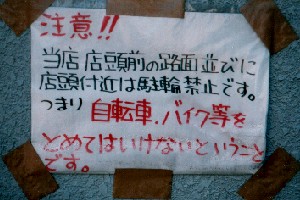 注意!!
当店 店頭前の路面並びに
店頭付近は駐輪禁止です。
つまり 自転車.バイク等を
とめてはいけないということ
です。